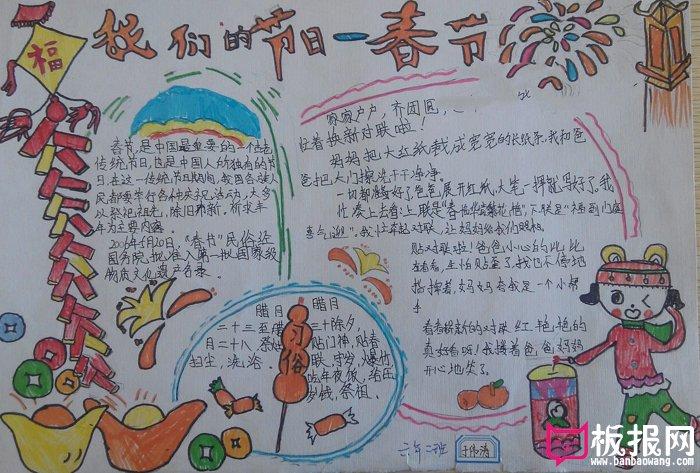 我们的节日—春节
福
春节,是中国最重要的一个古老
传统节日,也是中国人所独有的节
日。在这一传统节日期间,我国各族人
民都要举行各种庆祝活动,大多
以祭祀祖先、除旧布新、祈求丰
年为主要内容。
2006年5月20日,“春节”民俗经
国务院批准入第一批国家级
物质文化遗产名录。
家家户户,齐团圆,
忙着换新对联啦!
妈妈把大红纸裁成宽宽的长纸条,我和爸
爸把大门擦洗干干净净。
一切都准备好了,爸爸展开红纸,大笔一挥就写好了。我
忙凑上去看:上联是
我忙举起对联,让妈妈给我们照相。
贴对联啦!爸爸小心的比比
左看看,生怕贴歪了,我也不停地
指挥着,妈妈夸我是一个小帮
手
看着崭新的对联,红艳艳的
真好看呀!我搂着爸爸妈妈
开心地笑了。
习俗
腊月
二十三
月二十八
扫尘,洗浴。
腊月
三十除夕,
贴门神,贴春
联,守岁,爆竹
吃年夜饭,给压
岁钱,祭祖。
六年二班
板报网
www.banbaowang.com